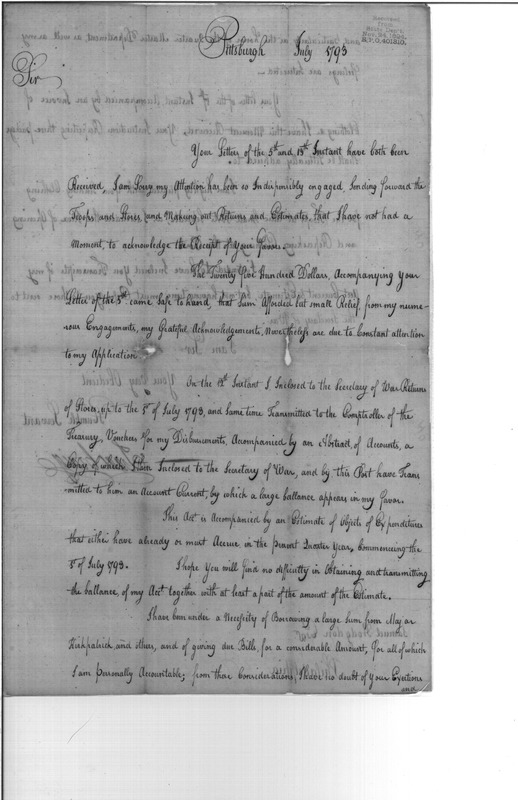 Pittsburgh July 1793
Sir
Your Letters of the 5th and 13th Instant have both been
Received, I am Sorry my Attention has been so Indispensibly engaged, Sending forward the
Troops and Stores, and Making out Returns and Estimates, that I have not had a
Moment, to acknowledge the Receipt of Your Favors.
The Twenty five Hundred Dollars, Accompanying Your
Letter of the 5th came Safe to hand, that Sum Afforded but small Relief, from my nume-
rous Engagements, my Grateful Acknowledgements, Nevertheless are due to Constant attention
to my Application.
On the 12th Instant I Inclosed to the Secretary of War Returns
of Stores, up to the 5th of July 1793, and same time Transmitted to the Comptroller of the
Treasury, Vouchers for my Disbursements, Accompanied by an Abstract of Accounts, a
Copy of which I Inclosed to the Secretary of War, and by this Post have Trans
-mitted to him an Account Current, by which a large ballance appears in my favor.
This Act is Accompanied by an Estimate of Objects of Expenditures
that either have already or must Accrue in the present Quarter Year, Commencing the
1st of July 1793. I hope You will find no difficulty in Obtaining and transmitting
the ballance, of my Acct together with at least a part of the amount of the Estimate.
I have been under a Necessity of Borrowing a large Sum from Major
Kirkpatrick and others, and of giving due Bills, for a considerable Amount, for all of which
I am personally Accountable; from those Considerations, I have no doubt of Your Exertions
and